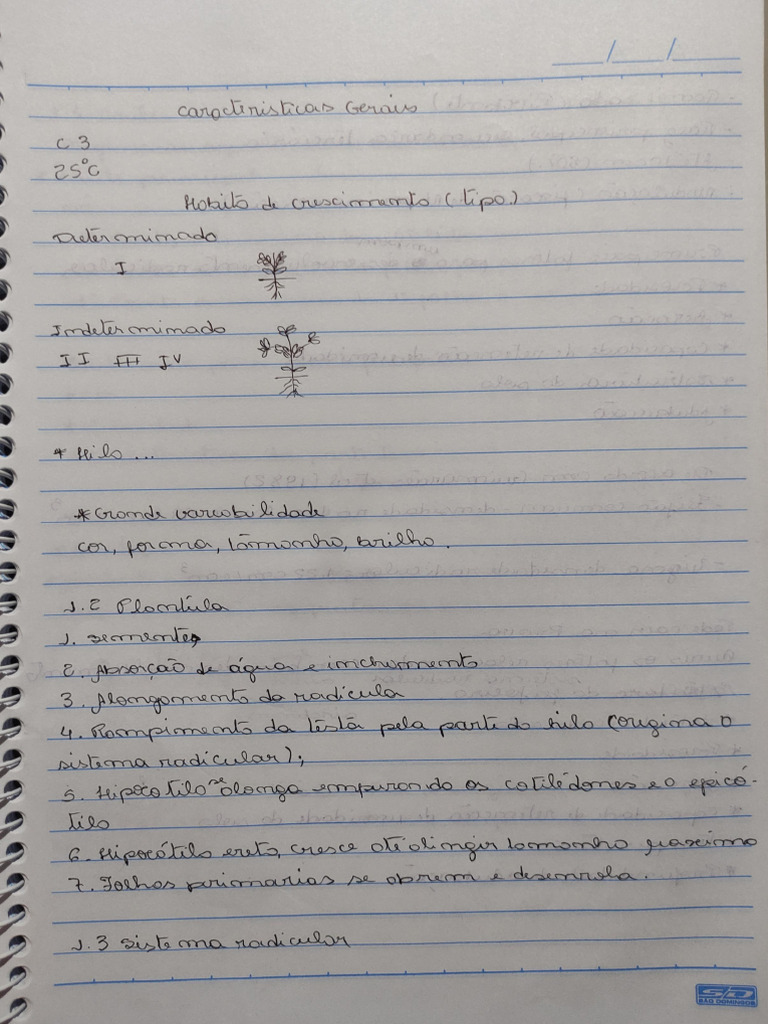 ___/___/___
Caracteristicas Gerais
C 3
25°C
Habito de crescimento (tipo.)
Determinado
I
Indeterminado
II III IV
* Hilo ...
* Grande vareobilidade
cor, forma, tamanho, brilho.
1.2 Plantula
1. semente,
2. Absorção de água e inchamento
3. Alongamento da radícula
4. Rompimento da testa pela parte do hilo (origina o
sistema radicular);
5. Hipocotilo se alonga empurando os cotilédones e o epicó-
tilo
6. Hipocótilo ereto, cresce até atingir tamanho maximo
7. Folhas primarias se abrem e desenrola.
1.3 sistema radicular
SD
SÃO DOMINGOS